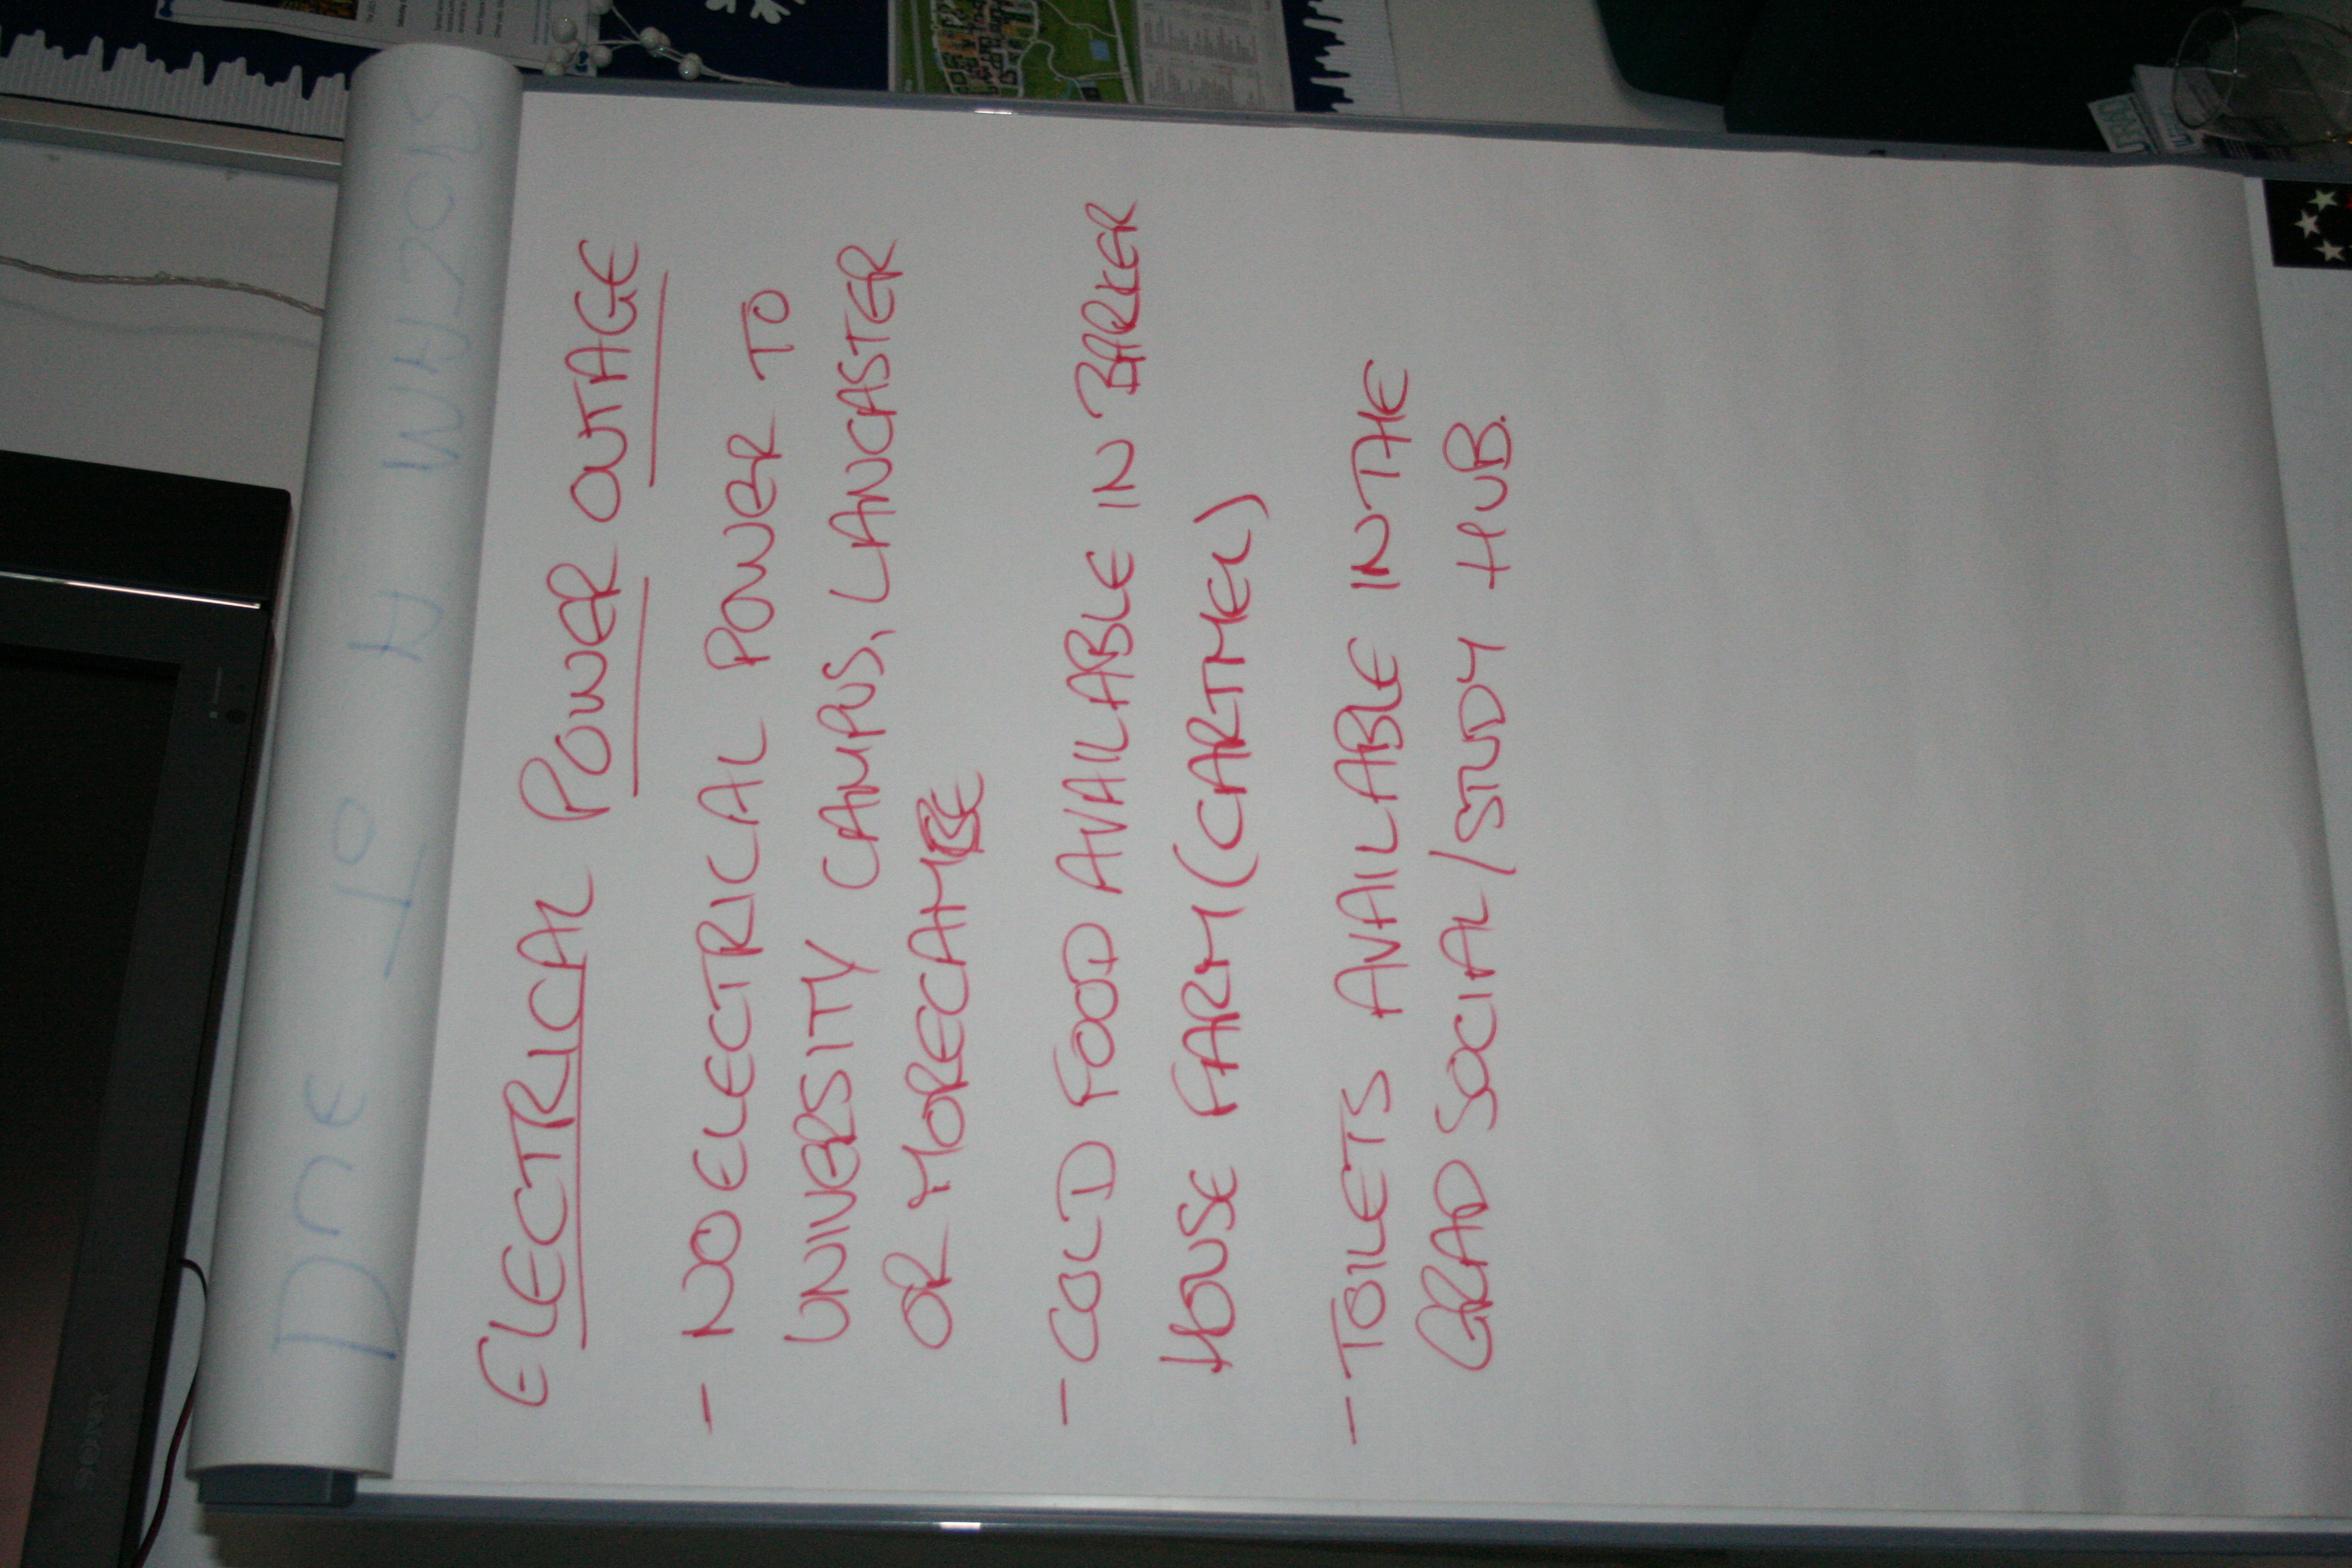 ELECTRICAL POWER OUTAGE
- NO ELECTRICAL POWER TO
UNIVERSITY CAMPUS, LANCASTER
OR MORECAMBE
- COLD FOOD AVAILABLE IN BARKER
HOUSE FARM (CARTMEL)
- TOILETS AVAILABLE IN THE
GRAD SOCIAL/STUDY HUB.
SONY